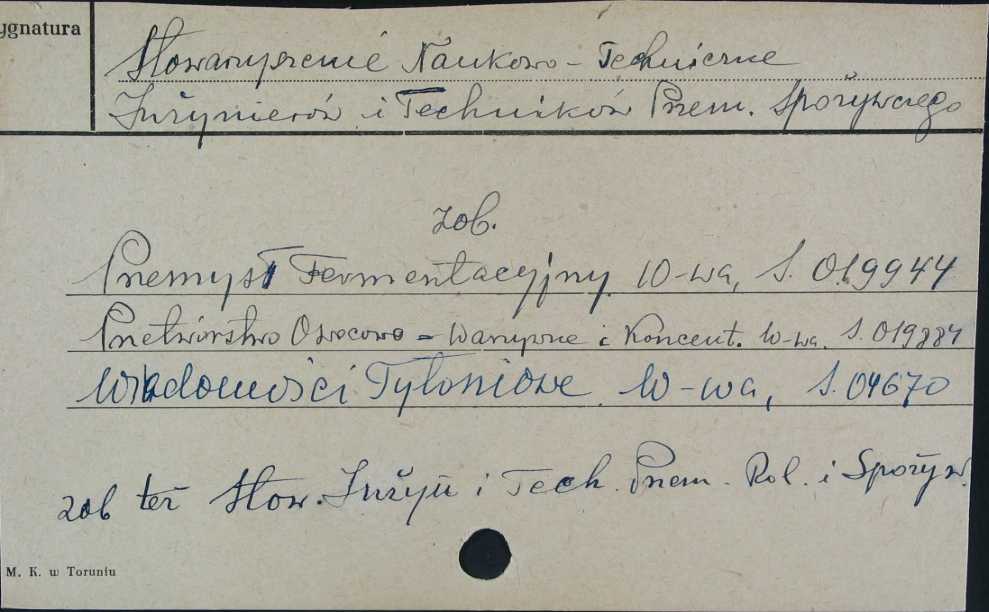 ygnatura
Stowarzyszenie Naukowo-Techniczne
Inżynierów i Techników Przem. Spożywczego
zob.
Przemysł Fermentacyjny W-wa, S. 019944
Przetwórstwo Owocowo-Warzywne i Koncent. W-wa. S. 019884
Wiadomości Tytoniowe W-wa, S. 04670
zob też Stow. Inżyn i Tech. Przem. Rol. i Spożyw.
M. K. w Toruniu